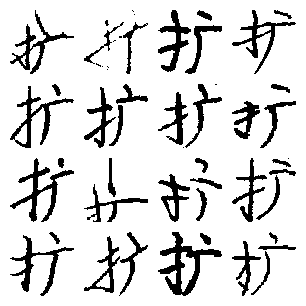 扩扩扩扩
扩扩扩扩
扩扩扩扩
扩扩扩扩